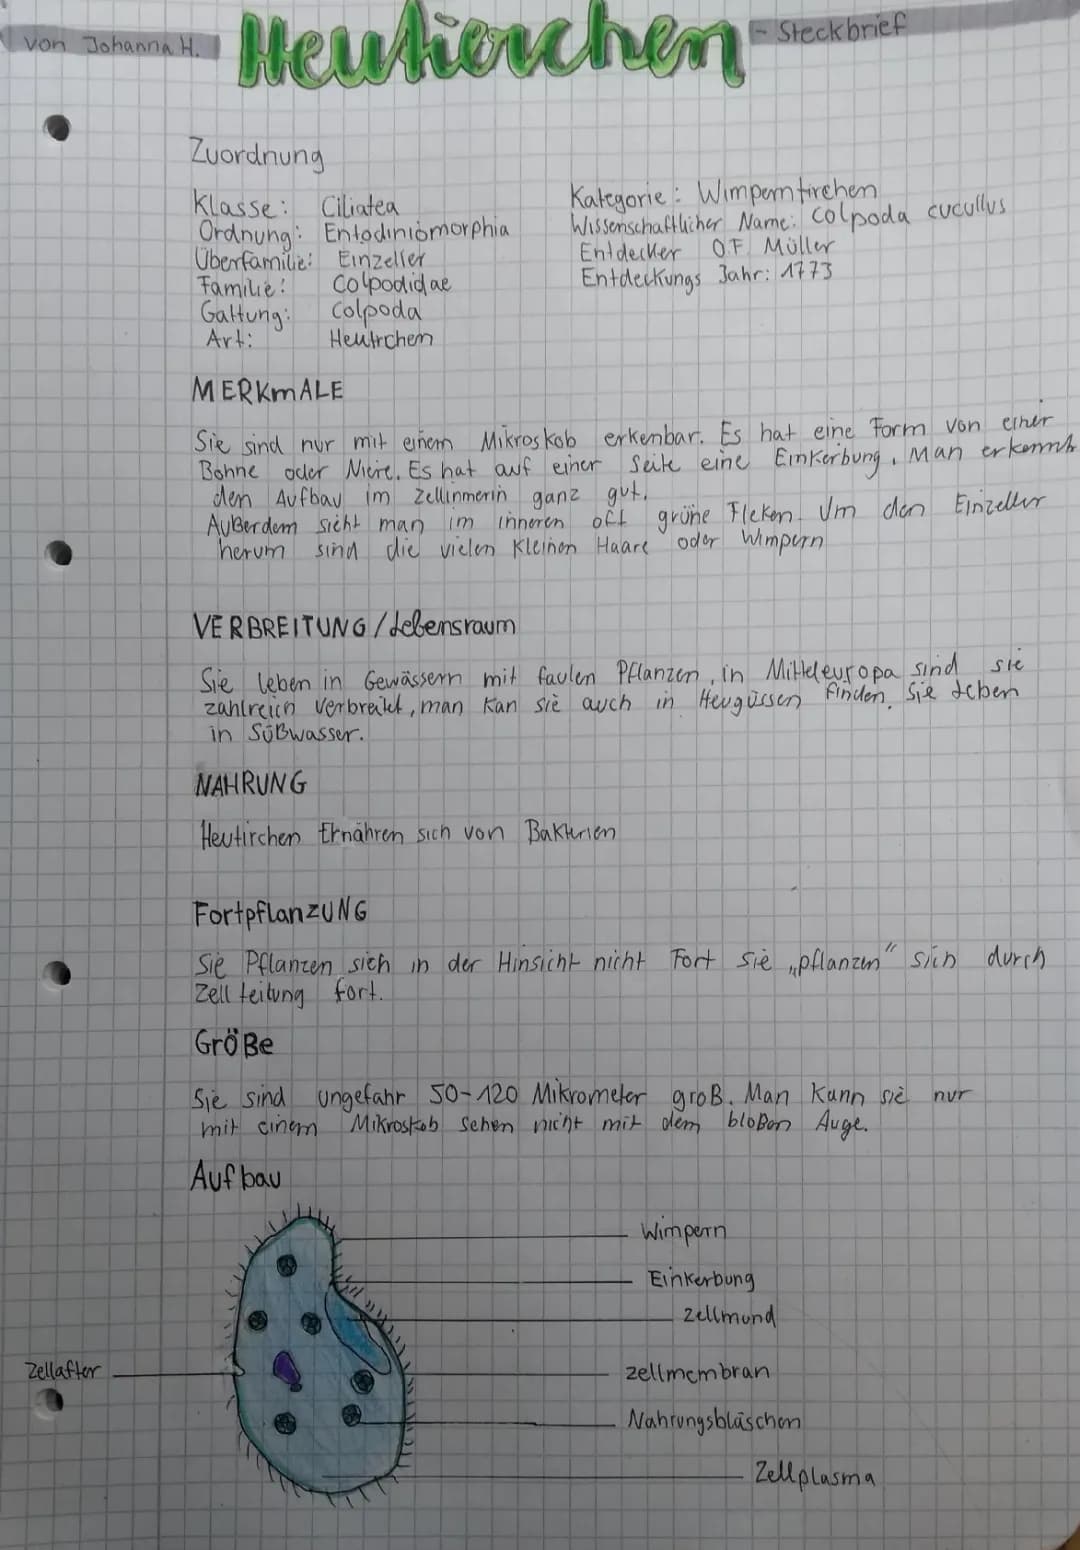 von Johanna H.
Heutierchen
- Steckbrief
Zuordnung
Klasse: Ciliatea
Ordnung: Entodiniomorphia
Überfamilie: Einzeller
Familie: Colpodidae
Gattung: Colpoda
Art: Heutrchen
Kategorie: Wimperntirchen
Wissenschaftlicher Name: Colpoda cucullus
Entdecker O.F. Müller
Entdeckungs Jahr: 1773
MERKmALE
Sie sind nur mit einem Mikroskob erkenbar. Es hat eine Form von einer
Bohne oder Niere. Es hat auf einer Seite eine Einkerbung. Man erkennt
den Aufbau im Zellinnerin ganz gut.
Außerdem sieht man im inneren oft grüne Fleken. Um den Einzeller
herum sind die vielen Kleinen Haare oder Wimpern
VERBREITUNG/Lebensraum
Sie leben in Gewässern mit faulen Pflanzen, in Mitteleuropa sind sie
zahlreich verbreitet, man kan sie auch in Heugüssen finden. Sie leben
in Süßwasser.
NAHRUNG
Heutirchen Ernähren sich von Bakterien
FortpflanZUNG
Sie Pflanzen sich in der Hinsicht nicht Fort sie „pflanzen" sich durch
Zell teilung fort.
Größe
Sie sind ungefähr 50-120 Mikrometer groß. Man Kann sie nur
mit einem Mikroskob sehen nicht mit dem bloßen Auge.
Aufbau
Wimpern
Einkerbung
Zellmund
Zellafter
zellmembran
Nahrungsbläschen
Zellplasma